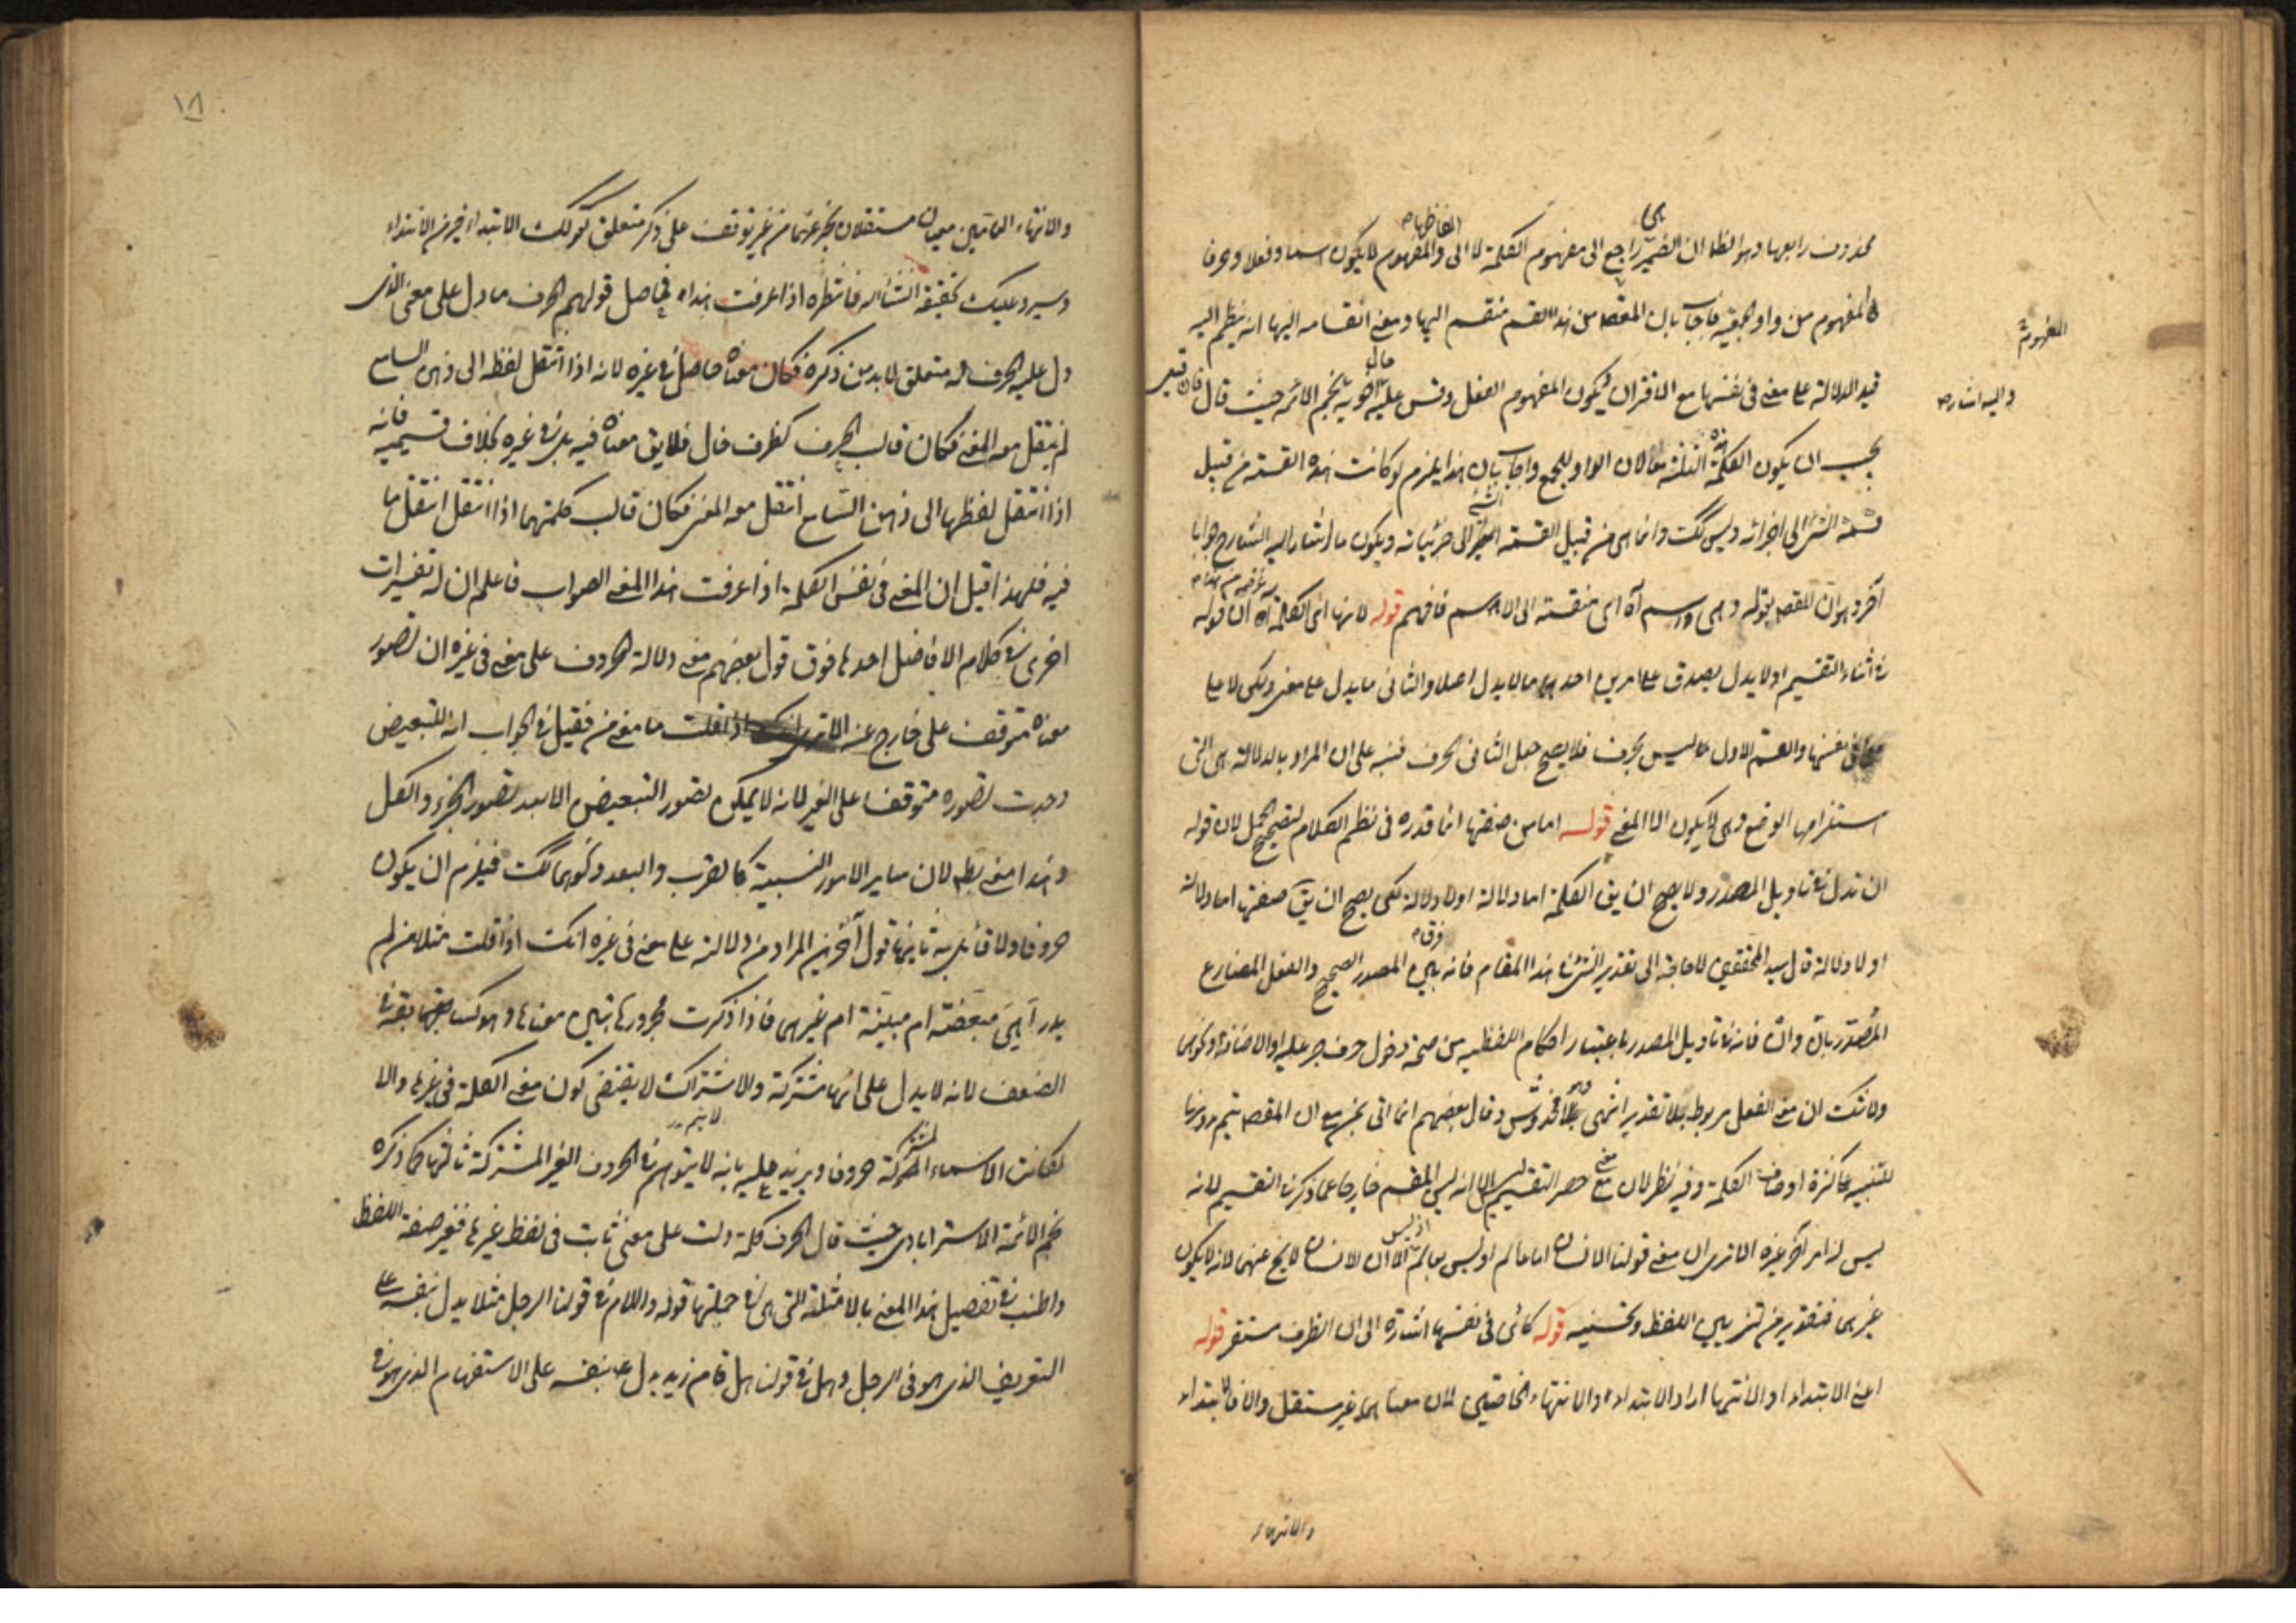 محذوف رابعها وهو الظاهر ان الضمير راجع الى مفهوم الكلمة لا الى والمفهوم لا يكون اسما وفعلا وحرفا
المفهوم من واو الجمعية فاجاب بان المقصد من هذا القسم منقسم اليها ومعنى انقسامه اليها انه ينظم اليه
قيد الدلالة على معنى في نفسها مع الاقتران ليكون المفهوم الفعل وقس عليه نجم الائمة حيث قال
يجب ان يكون الكلمة هذه الثلثة معا لان الواو للجمع واجاب بان هذا يلزم لو كانت هذه القسمة من قبيل
قسمة الشئ الى اجزائه وليس كك وانما هى من قبيل القسمة الى جزئياته ويكون ما اشار اليه الشارح جوابا
آخر وهو ان المقصد بقوله وهى اسم آه اى منقسمة الى الاسم فافهم قوله لانها اى الكلمة آه ان قوله
فى اثناء التقسيم او لا يدل يصدق على امرين احدهما ما لا يدل اصلا والثانى ما يدل على معنى ولكن لا على
معنى فى نفسها والقسم الاول ليس بحرف فلا يصح جعل الثانى الحرف فنبه على ان المراد بالدلالة هى التى
استلزامها الوضع وهى لا يكون الا المعنى قوله اما من صفتها انما قدره فى نظم الكلام لتصحيح الحمل لان قوله
ان تدل فى تاويل المصدر ولا يصح ان يق الكلمة اما دلالة او لا دلالة لكن يصح ان يق صفتها اما دلالة
او لا دلالة قال سيد المحققين لا حاجة الى تقدير الشئ فى هذا المقام فانه فرق بين المصدر الصحيح والفعل المضارع
المصدر بان وان فانه فى تاويل المصدر باعتبار احكام اللفظيه من صحة دخول حرف جر عليه او الاضافة ونحوهما
ولا شك ان معنى الفعل مربوط بلا تقدير انتهى وقال بعضهم انما اتى بمن مع ان المقصد يتم بدونها
للتنبيه على كثرة اوصاف الكلمة وفيه نظر لان معنى حصر التقسيم ليس الا انه ليس المقسم خارجا عما ذكر فى التقسيم لانه
ليس له امر آخر غيره الا ترى ان معنى قولنا الانسان اما عالم او ليس بعالم ليس الا ان الانسان لا يخ عنهما لانه لا يكون
غيرهما فتقدير من لتزيين اللفظ وتحسينه قوله كائن فى نفسها اشارة الى ان الظرف مستقر قوله
اعنى الابتداء او الانتها اراد الابتداء والانتهاء الخاصين لان معناهما غير مستقل والا فالابتداء
المفهوم
واليه اشاره
والانتهاء
١٨
والانتهاء العامين معنيان مستقلان يخبر عنهما من غير توقف على ذكر متعلق كقولك الابتداء خير من الانتهاء
وسيرد عليك تحقيقه انشاء الله فانتظره اذا عرفت هذا فحاصل قولهم الحرف ما دل على معنى الذى
دل عليه الحرف له متعلق لا بد من ذكره فكان معناه حاصل فى غيره لانه اذا انتقل لفظه الى ذهن السامع
لم ينتقل معه المعنى فكان قالب الحرف كظرف خال فلا يق معناه فيه بل فى غيره بخلاف قسيميه فانه
اذا انتقل لفظها الى ذهن السامع انتقل معه المعنى فكان قالب كلمتهما اذا انتقل انتقل بما
فيه فلهذا قيل ان المعنى فى نفس الكلمة اذا عرفت هذا المعنى الصواب فاعلم ان له تفسيرات
اخرى فى كلام الافاضل احدها فوق قول بعضهم معنى دلالة الحروف على معنى فى غيره ان تصور
معناه متوقف على خارج عنه الا ترى انك اذا قلت ما معنى من فقيل فى الجواب انه للتبعيض
وجدت تصوره متوقفا على الغير لانه لا يمكن تصور التبعيض الا بعد تصور الجزء والكل
وهذا معنى بط لان ساير الامور النسبية كالقرب والبعد ونحوهما كك فيلزم ان يكون
حروفا ولا قائل به ثانيها قول آخرين المراد من دلالته على معنى فى غيره انك اذا قلت مثلا من لم
يدر أهى مبعضة ام مبينة ام غيرهما فاذا ذكرت مجرورها تبين معناها وهو كسابقه فى
الضعف لانه لا يدل على انها مشتركة والاشتراك لا يقتضى كون معنى الكلمة فى غيرها والا
لكانت الاسماء المشتركة حروفا ويرد عليه بانه لا يتم فى الحروف الغير المشتركة ثالثها ما ذكره
نجم الائمة الاسترابادى حيث قال الحرف كلمة دلت على معنى ثابت فى لفظ غيرها فغير صفة اللفظ
واطنب فى تفصيل هذا المعنى بالامثلة التى هى فى جملتها قوله واللام فى قولنا الرجل مثلا يدل بنفسه على
التعريف الذى هو فى الرجل وهل فى قولنا هل قام زيد يدل بنفسه على الاستفهام الذى هو فى